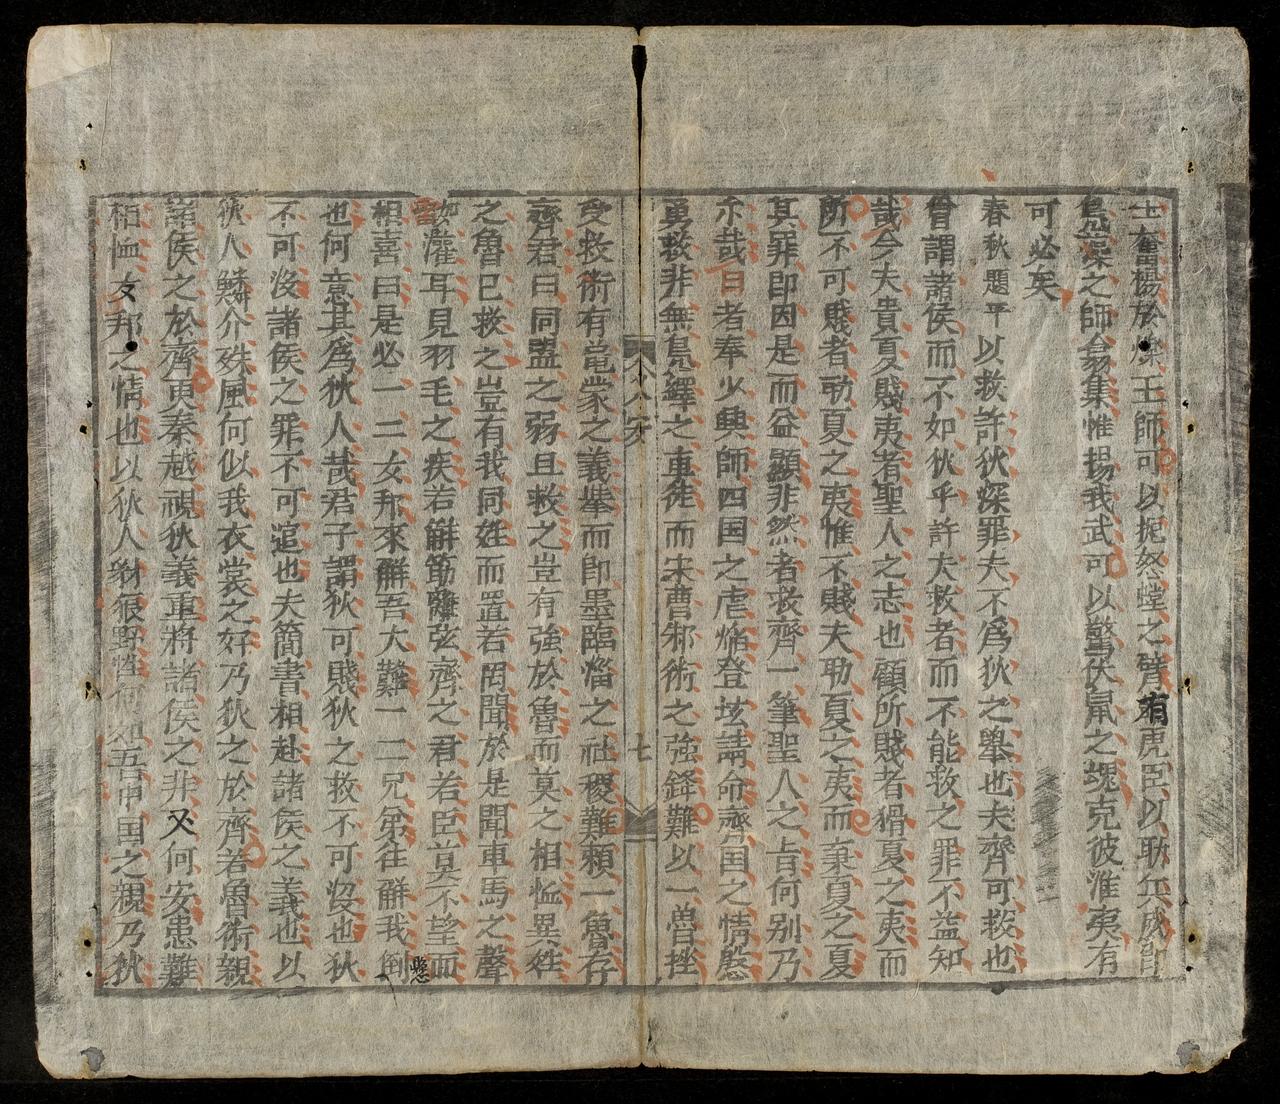 士奮楊於燥王師可以扼怒螳之臂有虎臣以耿兵威
梟溧之師翕集惟揚我武可以驚伏鼠之塊克彼淮夷有
可必矣
春秋題平 以救許狄深罪夫不為狄之舉也夫齊可救也
曾謂諸侯而不如狄乎許夫救者而不能救之罪不益知
哉今夫貴夏賤夷者聖人之志也顧所賤者猾夏之夷而
所不可賤者勈夏之夷惟不賤夫勈夏之夷而棄夏之夏
其罪即因是而益顯非然者救齊一筆聖人之旨何別乃
尒哉日者奉少興師四国之虐焰登坛請命齊国之情慇
勇救非無息繹之車徒而宋曹邾術之強鋒難以一魯挫
公文
七
受救術有竜蒙之義挙而即墨臨淄之社稷難頼一魯存
齊君曰同盟之弱且救之豈有強於魯而莫之相恤異姓
之魯已救之豈有我同姓而置若罔聞於是聞車馬之聲
如灌耳見羽毛之疾若觧筋離弦齊之君若臣莫不望而
相喜曰是必一二友邦來觧吾大難一二兄弟往觧我倒
懸
也何意其為狄人哉君子謂狄可賤狄之救不可沒也狄
不可沒諸侯之罪不可逭也夫簡書相赴諸侯之義也以
狄人鱗介殊風何似我衣裳之好乃狄之於齊若魯術親
諸侯之於齊更秦越視狄義重將諸侯之非又何安患難
相恤友邦之情也以狄人豺狼野性何如吾中国之親乃狄